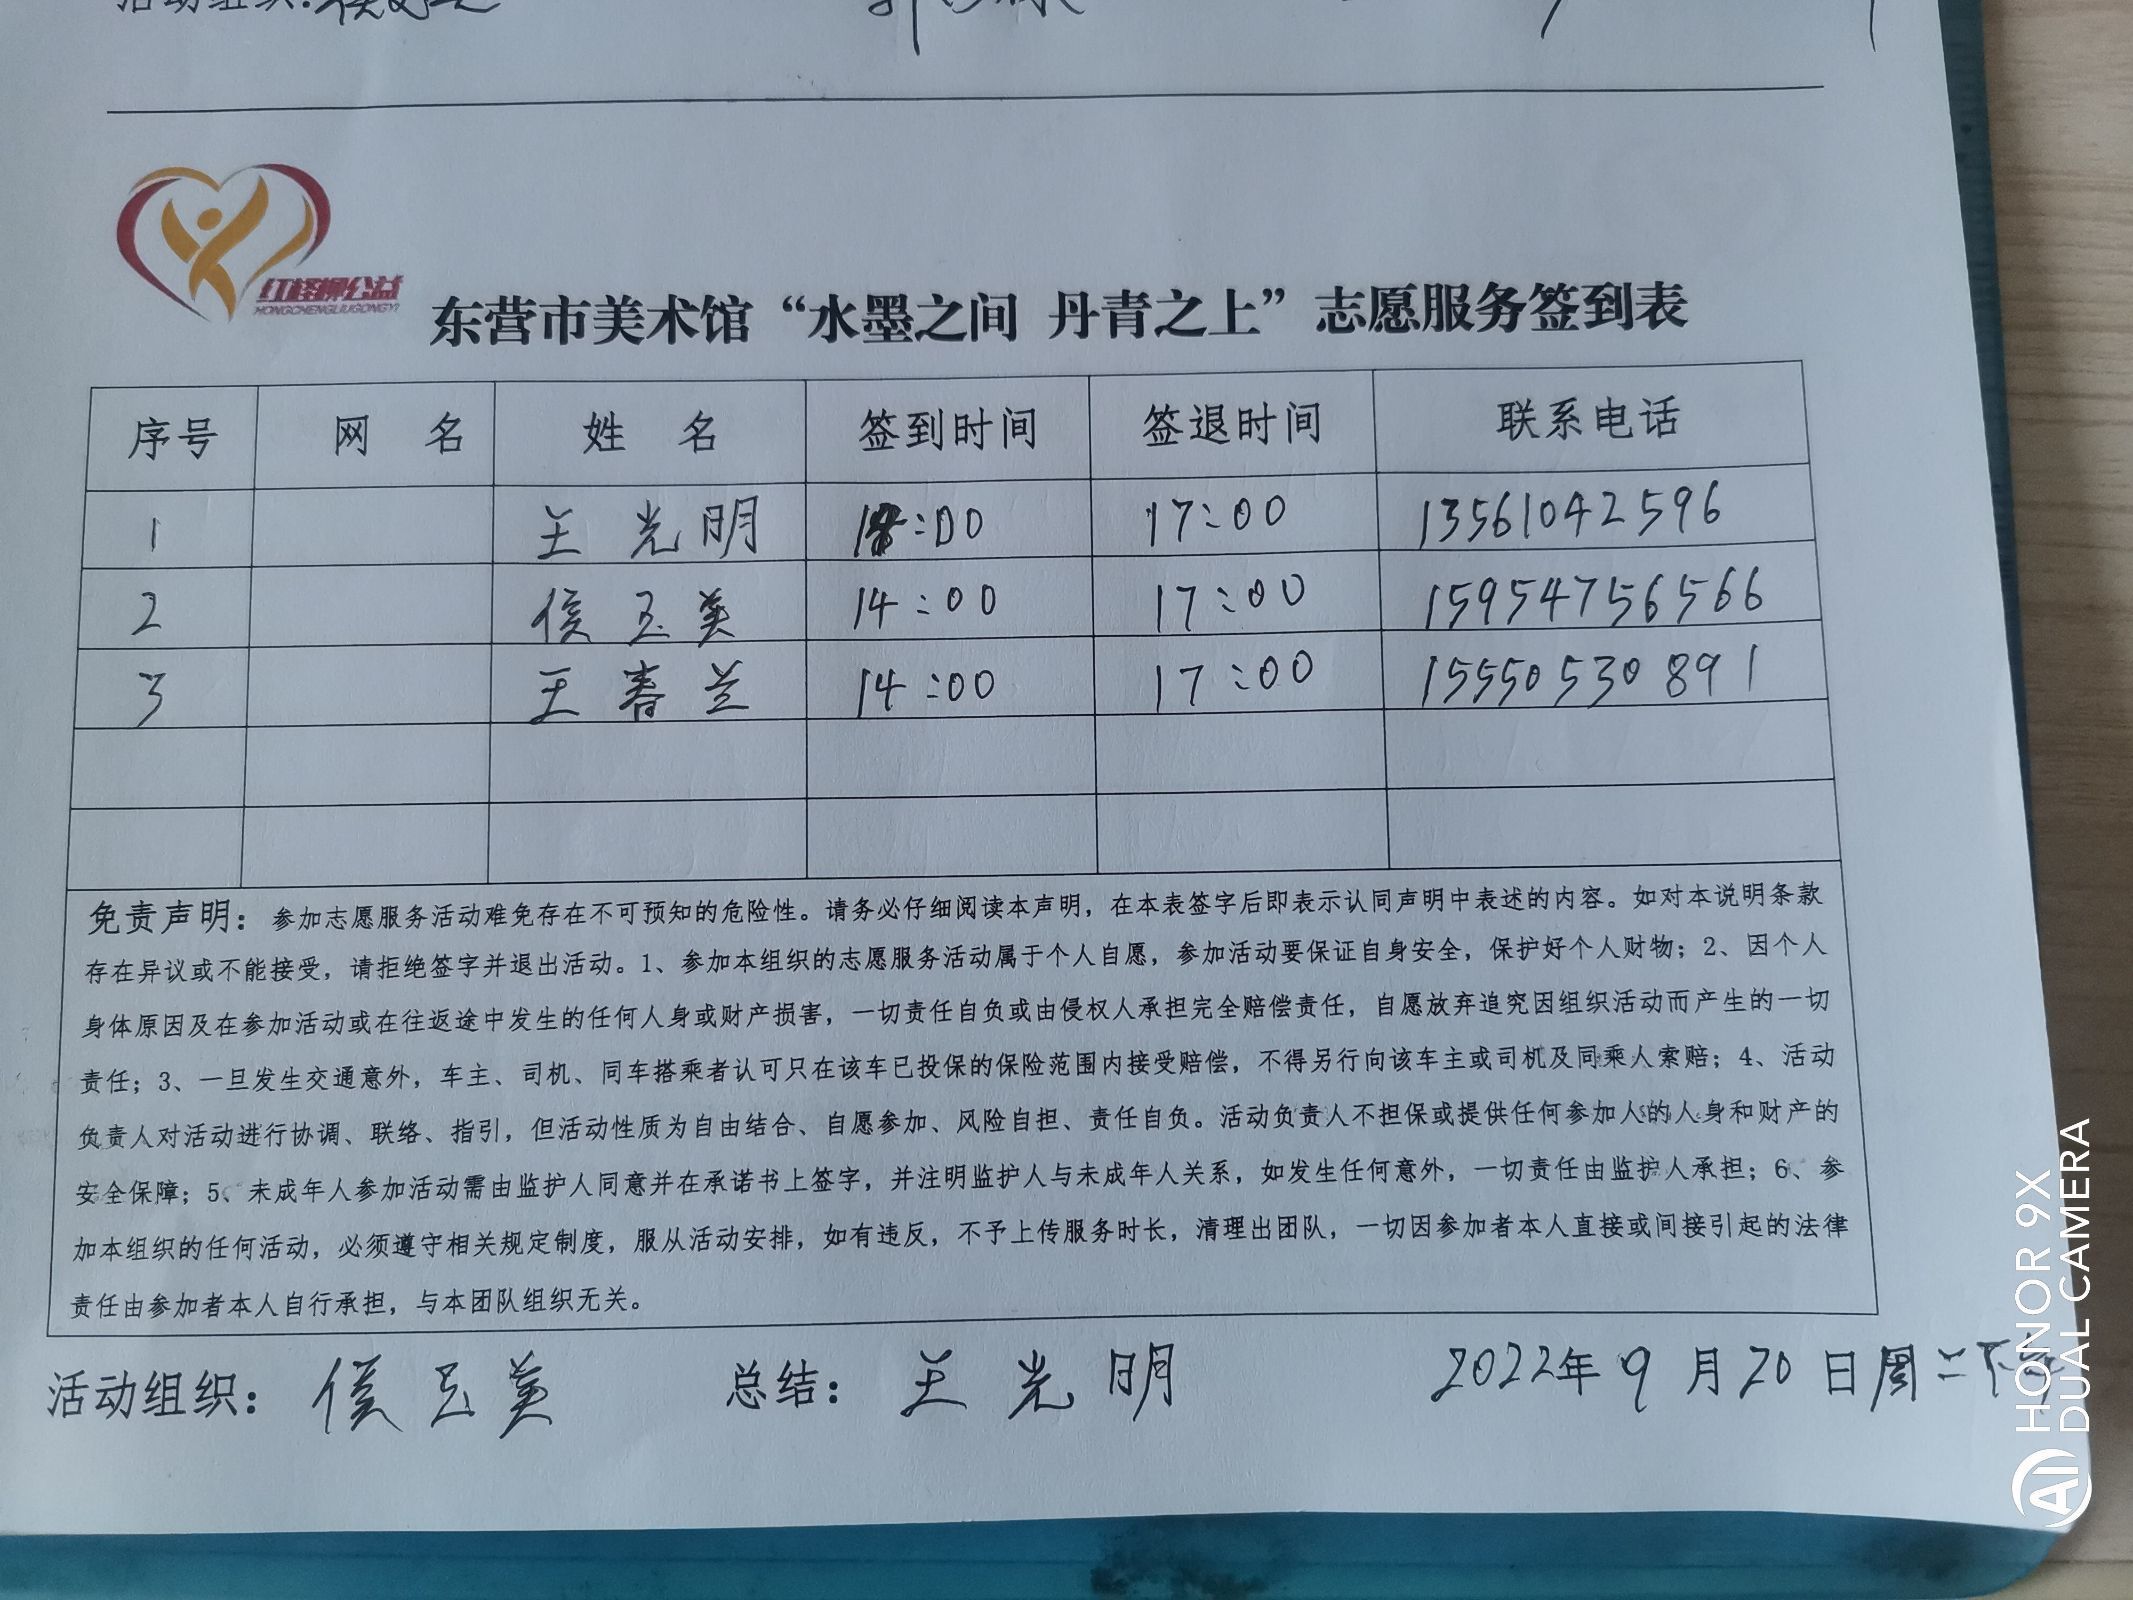 活动组织:侯玉美
红柽柳公益
HONGCHENGLIUGONGYI
东营市美术馆“水墨之间 丹青之上”志愿服务签到表
序号 网 名 姓 名 签到时间 签退时间 联系电话
1 王光明 14:00 17:00 13561042596
2 侯玉美 14:00 17:00 15954756566
3 王春兰 14:00 17:00 15550530891
免责声明：参加志愿服务活动难免存在不可预知的危险性。请务必仔细阅读本声明，在本表签字后即表示认同声明中表述的内容。如对本说明条款
存在异议或不能接受，请拒绝签字并退出活动。1、参加本组织的志愿服务活动属于个人自愿，参加活动要保证自身安全，保护好个人财物；2、因个人
身体原因及在参加活动或在往返途中发生的任何人身或财产损害，一切责任自负或由侵权人承担完全赔偿责任，自愿放弃追究因组织活动而产生的一切
责任；3、一旦发生交通意外，车主、司机、同车搭乘者认可只在该车已投保的保险范围内接受赔偿，不得另行向该车主或司机及同乘人索赔；4、活动
负责人对活动进行协调、联络、指引，但活动性质为自由结合、自愿参加、风险自担、责任自负。活动负责人不担保或提供任何参加人的人身和财产的
安全保障；5、未成年人参加活动需由监护人同意并在承诺书上签字，并注明监护人与未成年人关系，如发生任何意外，一切责任由监护人承担；6、参
加本组织的任何活动，必须遵守相关规定制度，服从活动安排，如有违反，不予上传服务时长，清理出团队，一切因参加者本人直接或间接引起的法律
责任由参加者本人自行承担，与本团队组织无关。
活动组织：侯玉美 总结：王光明 2022年9月20日周二下午
HONOR 9X
AI DUAL CAMERA